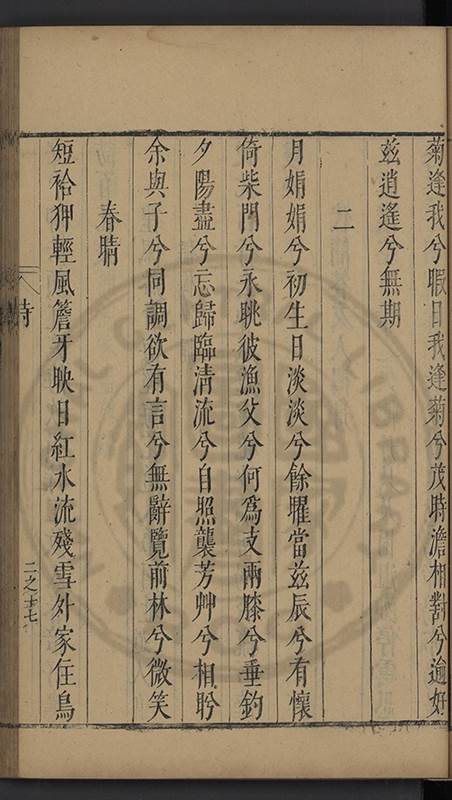 菊逢我兮暇日我逢菊兮茂時澹相對兮逾好
兹逍遙兮無期
二
月娟娟兮初生日淡淡兮餘曜當兹辰兮有懷
倚柴門兮永眺彼漁父兮何爲支兩膝兮垂釣
夕陽盡兮忘歸臨清流兮自照襲芳艸兮相盻
余與子兮同調欲有言兮無辭覽前林兮微笑
春晴
短袷狎輕風簷牙映日紅水流殘雪外家住鳥
詩
二之十七